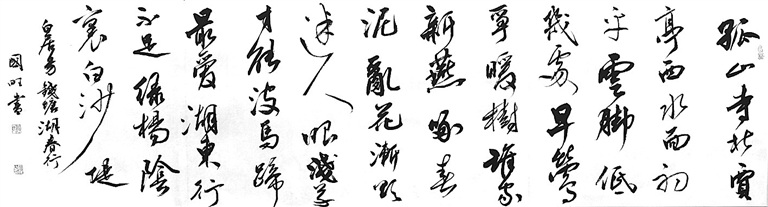 孤山寺北賈
亭西水面初
平雲脚低
幾處早鶯
爭暖樹誰家
新燕啄春
泥亂花漸欲
迷人眼淺草
才能沒馬蹄
最愛湖東行
不足綠楊陰
裏白沙堤
白居易錢塘湖春行
國書